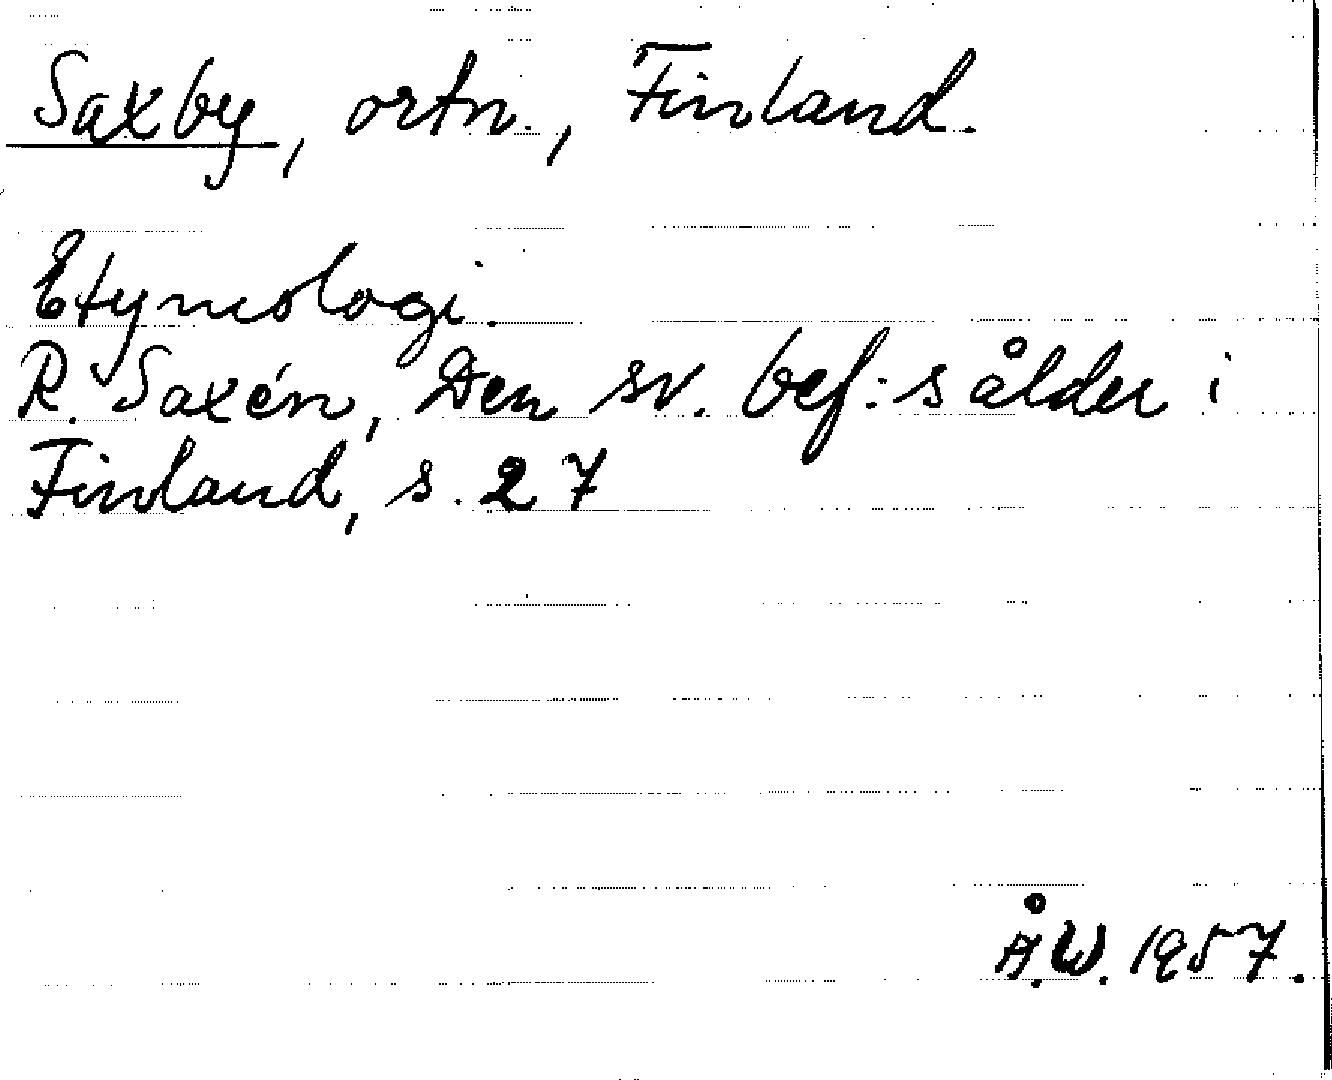 Saxby, ortn., Finland.
Etymologi.
R. Saxén, Den sv. bef:s ålder i
Finland, s. 27
Å.W. 1957.